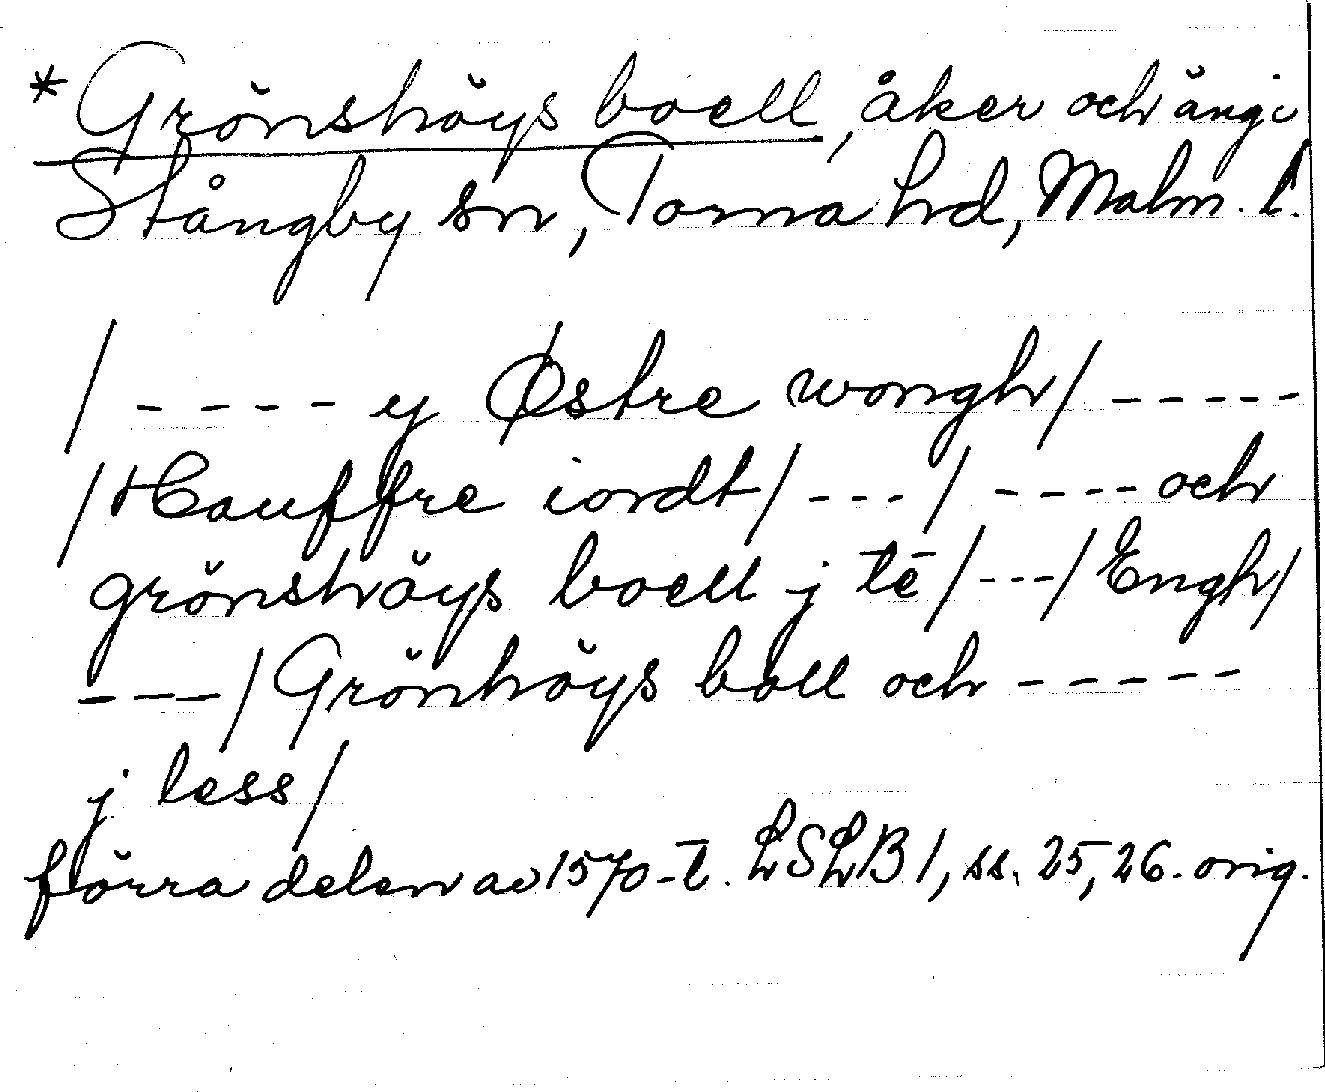 *Grönshöys boell, åker och äng i
Stångby sn, Torna hd, Malm. l.
/ - - - - y Østre wongh/ - - - - -
/Hauffre iordt/ - - - / - - - - och
grönshöys boell j tē / - - - / Engh/
- - - / Grönhöys boll och - - - - -
j less/
förra delen av 1570-t. LSLB 1, ss. 25, 26. orig.